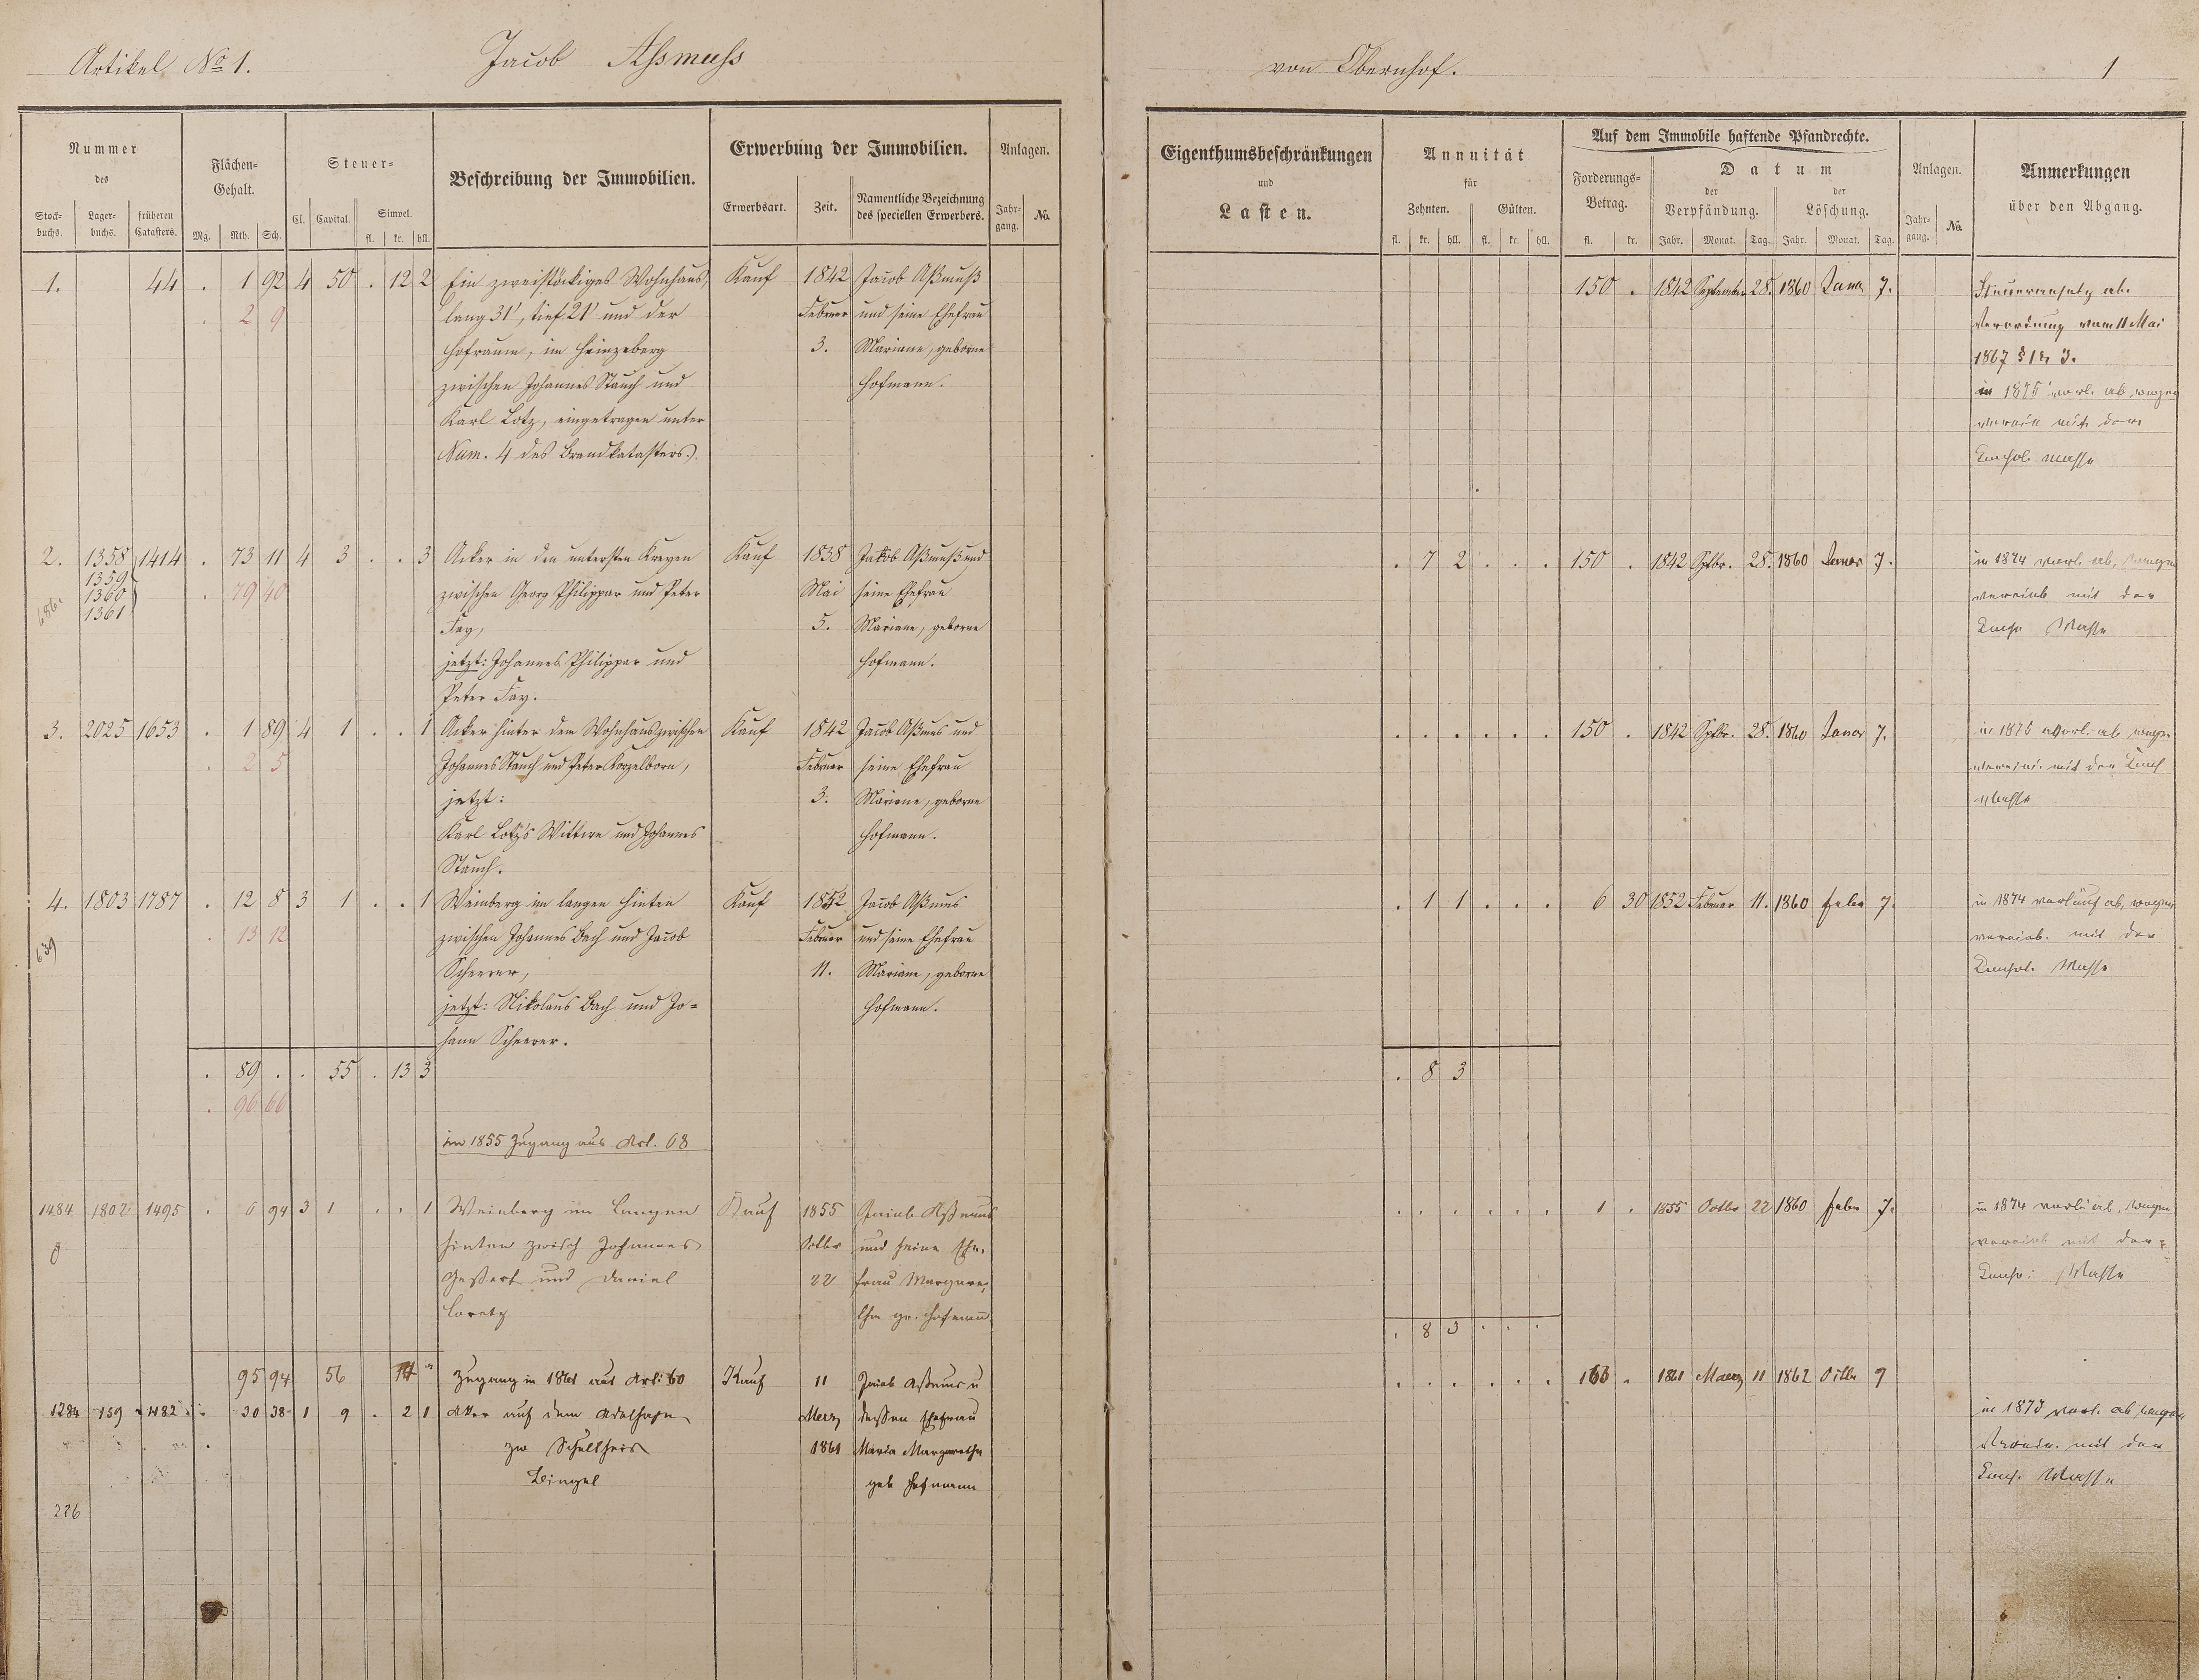 Artikel No 1.
Jacob Assmuss
von Obernhof.
1
Nummer
des
Stock-
buchs.
Lager-
buchs.
früheren
Catasters.
Flächen-
Gehalt.
Mg. Rth. Sch.
Steuer-
Cl. Capital.
Simpel.
fl. kr. hll.
Beschreibung der Immobilien.
Erwerbung der Immobilien.
Erwerbsart.
Zeit.
Namentliche Bezeichnung
des speciellen Erwerbers.
Anlagen.
Jahr-
gang.
No.
Eigenthumsbeschränkungen
und
Lasten.
Annuität
für
Zehnten. Gülten.
fl. kr. hll. fl. kr. hll.
Auf dem Immobile haftende Pfandrechte.
Forderungs-
Betrag.
fl. kr.
Datum
der
Verpfändung.
der
Löschung.
Jahr. Monat. Tag. Jahr. Monat. Tag.
Anlagen.
Jahr-
gang.
No.
Anmerkungen
über den Abgang.
1. 44 . 1 92 4 50 . 12 2 Ein zweistöckiges Wohnhaus, Kauf 1842 Jacob Aßmuß 150 . 1842 September 28. 1860 7.
. 2 9 lang 31', tief 21' und der Februar und seine Ehefrau Verordnung vom 11 Mai
Hofraum, im Heinzeberg 3. Mariane, geborne 1867 §
zwischen Johannes Stauch und Hofmann. in 1875 ab, wegen
Karl Lotz, eingetragen unter mit der
Num. 4 des Brandkatasters. Consol. Masse
2. 1358 1414 . 73 11 4 3 . . 3 Acker in den untersten Kreyen Kauf 1838 Jakob Aßmuß und . 7 2 . . . 150 . 1842 Sptbr. 28. 1860 7. in 1874 ab, wegen
1359 . 79 40 zwischen Georg Philippar und Peter Mai seine Ehefrau mit der
1360
1361 Fay, 5. Mariane, geborne Masse
686.
jetzt: Johannes Philippar und Hofmann.
Peter Fay.
3. 2025 1653 . 1 89 4 1 . . 1 Acker hinter dem Wohnhaus zwischen Kauf 1842 Jacob Aßmus und . . . . . . 150 . 1842 Sptbr. 28. 1860 7. in 1875 ab wegen
. 2 5 Johannes Stauch und Peter Februar seine Ehefrau mit der
jetzt: 3. Mariane, geborne Masse
Karl Lotz's Wittwe und Johannes Hofmann.
Stauch.
4. 1803 1787 . 12 8 3 1 . . 1 Weinberg im langen hinten Kauf 1852 Jacob Aßmus . 1 1 . . . 6 30 1852 Februar 11. 1860 Febr 7. in 1874 ab, wegen
639 . 13 12 zwischen Johannes Bach und Jacob Februar und seine Ehefrau mit der
Scheerer, 11. Mariane, geborne Consol. Masse
jetzt: Nikolaus Bach und Jo-
Hofmann.
hann Scheerer.
. 89 . . 55 . 13 3 . 8 3
. 96 66
im 1855 Zugang aus Art. 68
1484 1802 1495 . 6 94 3 1 . . 1 Weinberg im Langen Kauf 1855 Aßmus . . . . . . 1 . 1855 Octbr 22 1860 Febr 7. in 1874 ab, wegen
hinten zwisch Johannes Octbr und seine Ehe- mit der
und Daniel 22 frau Margare- Masse
Loretz tha ge. Hofmann
. 8 3 . . .
95 94 56 14 " Zugang in 1861 aus Art: 60 Kauf 11 Jacob Aßmus u . . . . . . . 1861 Maerz 11 1862 Octbr 9
1284 159 482 . 30 38 1 9 . 2 1 Aker auf dem Merz dessen Ehefrau in 1873 ab, wegen
zw Schultheis 1861 Maria Margaretha mit der
Dingel geb Hofmann Masse
226